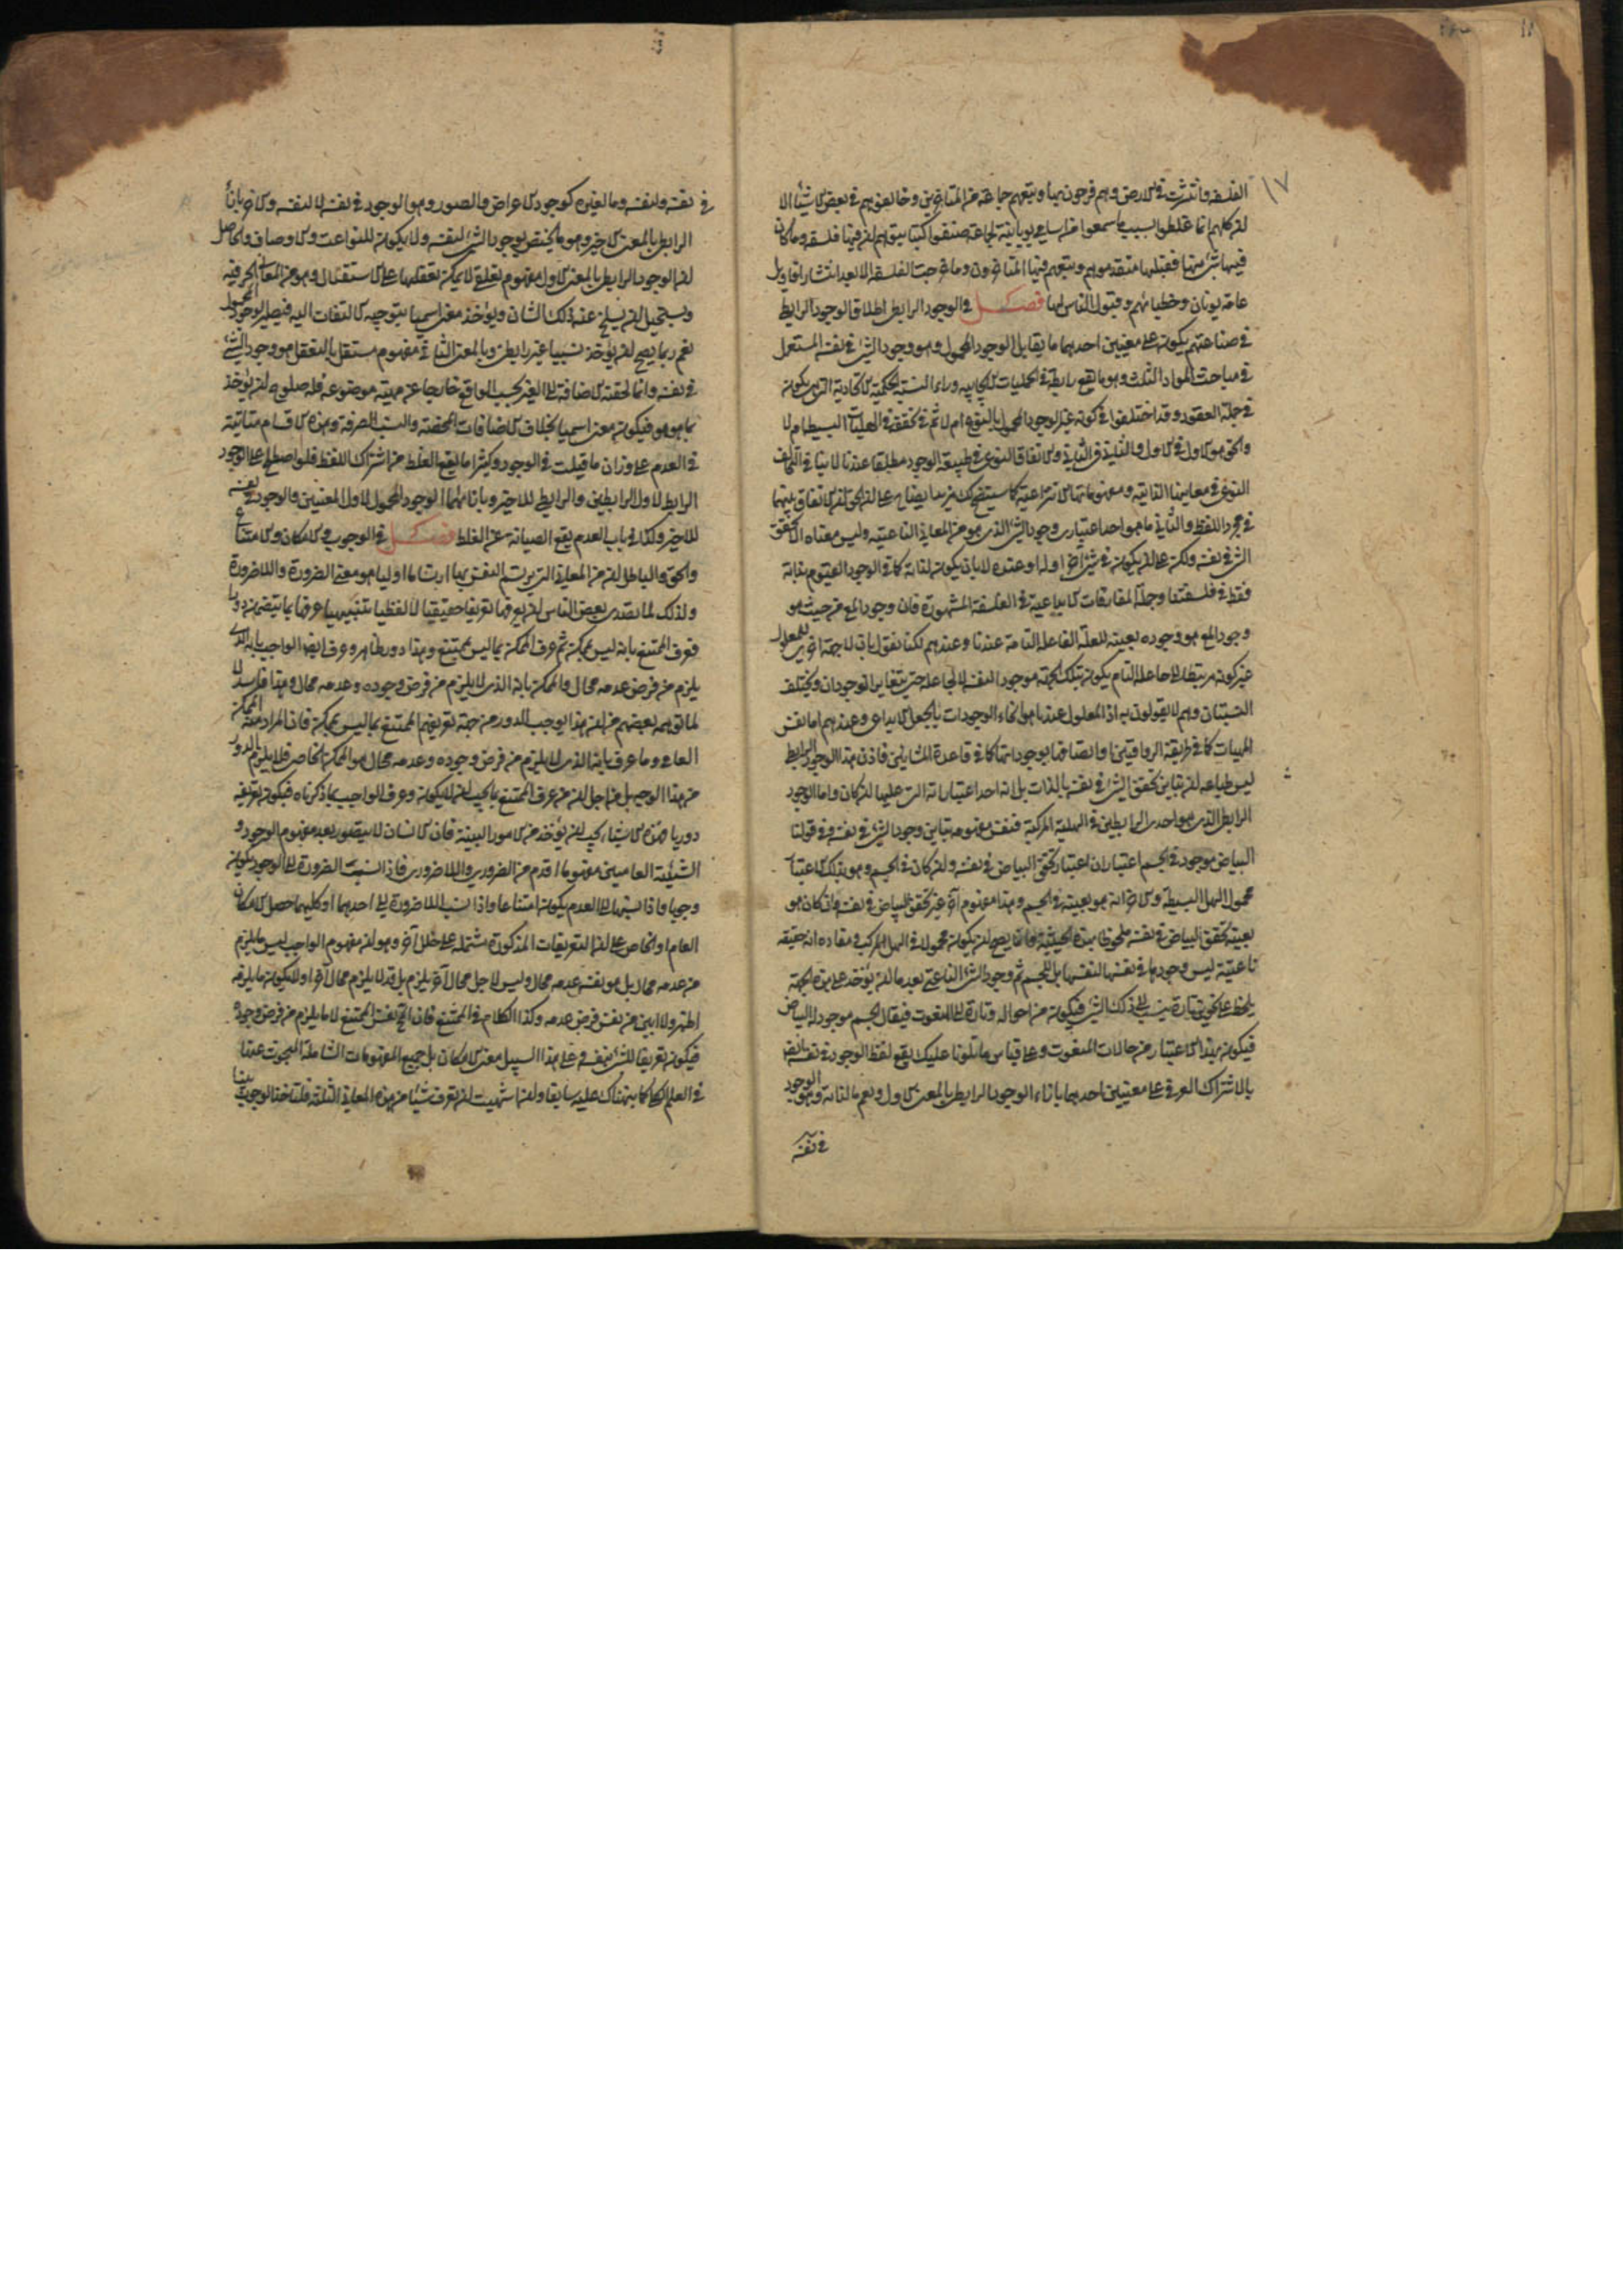 ١٧
الفلسفه وانتشرت فى الارض وهم فرحون بها وتبعهم جماعة من المتاخرين وخالفوهم فى بعض الاشياء الا
ان كلهم انما غلطوا بسبب ما سمعوا من اسامى يونانية لجماعة صنفوا كتبا يتوهم ان فيها فلسفه وما كان
فيها شئ منها فقبلها متقدموهم وتبعهم فيها المتاخرون وما خرجت الفلسفة الا بعد انتشار اقاويل
عامة يونان وخطبائهم وقبول الناس لها فصل فى الوجود الرابطى اطلاق الوجود الرابطى
فى صناعتهم يكون على معنيين احدهما ما يقابل الوجود المحمولى وهو وجود الشئ فى نفسه المستعمل
فى مباحث المواد الثلث وهو ما يقع رابطة فى الحمليات الايجابيه وراء النسبة الحكمية الاتحادية التى هى تكون
فى جملة العقود وقد اختلفوا فى كونه غير الوجود المحمولى بالنوع ام لا ثم فى تحققه فى الهليات البسيطه ام لا
والحق هو الاول فى الاول والثانى فى الثانى والاتفاق النوعى فى طبيعة الوجود مطلقا عندنا لا ينافى التخالف
النوعى فى معانيها الذاتية ومفهوماتها الانتزاعية كما سيتضح لك مزيد ايضاح على ان الحق ان الاتفاق بينهما
فى مجرد اللفظ والثانى ما هو احد اعتبارى وجود الشئ الذى هو من المعانى الناعتية وليس معناه الا تحقق
الشئ فى نفسه ولكن على ان يكون فى شئ اخر او له او عنده لا بان يكون لذاته كما فى الوجود القيوم بذاته
فقط فى فلسفتنا وجملة المفارقات الابداعية فى الفلسفة المشهورة فان وجود المع من حيث هو
وجود المع هو وجوده بعينه للعلة الفاعلة التامة عندنا وعندهم لكنا نقول بان لا جهة اخرى للمعلول
غير كونه مرتبطا الى جاعله التام يكون بتلك الجهة موجودا لنفسه لا لجاعله حتى يتغاير الوجودان ويختلف
النسبتان وهم لا يقولون به اذ المعلول عندنا هو انحاء الوجودات بالجعل الابداعى وعندهم اما نفس
المهيات كما فى طريقة الرواقيين او اتصافها بوجوداتها كما فى قاعدة المشائين فاذن هذا الوجود الرابط
ليس طباعه ان تباين تحقق الشئ فى نفسه بالذات بل انه احد اعتباراته التى عليها ان كان واما الوجود
الرابط الذى هو احدى الرابطتين فى الهلية المركبة فنفس مفهومه تباين وجود الشئ فى نفسه وفى قولنا
البياض موجود فى الجسم اعتباران اعتبار تحقق البياض فى نفسه وان كان فى الجسم وهو بذلك الاعتبار
محمول الهل البسيط والاخر انه هو بعينه فى الجسم وهذا مفهوم آخر غير تحقق البياض فى نفسه وان كان هو
بعينه تحقق البياض فى نفسه ملحوظا بهذه الحيثية وانما يصح ان يكون محمولا فى الهل المركب ومفاده انه حقيقة
ناعتية ليس وجودها فى نفسها لنفسها بل للجسم ثم وجود الشئ الناعتى بعد ما ان يؤخذ على هذه الجهة
يلحظ على نحوين تارة ينسب الى ذلك الشئ فيكون من احواله وتارة الى المنعوت فيقال الجسم موجود له البياض
فيكون بهذا الاعتبار من حالات المنعوت وعلى قياس ما تلونا عليك يقع لفظ الوجود فى نفسه ايضا
بالاشتراك العرفى على معنيين احدهما بازاء الوجود الرابطى بالمعنى الاول ويعم ما لذاته وهو الوجود
فى نفسه
فى نفسه ولنفسه وما لغيره كوجود الاعراض والصور وهو الوجود فى نفسه لا لنفسه والاخر بازاء
الرابطى بالمعنى الاخير وهو ما يختص بوجود الشئ لنفسه ولا يكون للنواعت والاوصاف والحاصل
ان الوجود الرابطى بالمعنى الاول مفهوم تعلقى لا يمكن تعقلها على الاستقلال وهو من المعانى الحرفية
ويستحيل ان يسلخ عنه ذلك الشان ويؤخذ معنى اسميا بتوجيه الالتفات اليه فيصير الوجود المحمولى
نعم ربما يصح ان يؤخذ نسبيا غير رابطى وبالمعنى الثانى مفهوم مستقل بالتعقل هو وجود الشئ
فى نفسه وانما لحقته الاضافة الى الغير بحسب الواقع خارجا عن مهية موضوعه فله صلوح ان يؤخذ
بما هو هو فيكون معنى اسميا بخلاف الاضافات المحضة والنسب الصرفة وهذه الاقسام متاتية
فى العدم على وزان ما قيلت فى الوجود وكثيرا ما يقع الغلط من اشتراك اللفظ فلو اصطلح على الوجود
الرابط لاول الرابطين والرابطى للاخير وبازائهما الوجود المحمولى لاول المعنيين والوجود فى نفسه
للاخير وكذا فى باب العدم يقع الصيانة عن الغلط فصل فى الوجوب والامكان والامتناع
والحق والباطل ان من المعانى التى يرتسم النفس بها ارتساما اوليا هو معنى الضرورة واللاضرورة
ولذلك لما تصدى بعض الناس ان يعرفها تعريفا حقيقيا لا لفظيا تنبيهيا عرفها بما يتضمن دورا
فعرف الممتنع بانه ليس بممكن ثم عرف الممكن بما ليس بممتنع وهذا دور ظاهر وعرف ايضا الواجب بانه الذى
يلزم من فرض عدمه محال والممكن بانه الذى لا يلزم من فرض وجوده وعدمه محال وهذا فاسد لا
لما توهمه بعضهم من ان هذا يوجب الدور من جهة تعريفهم الممتنع بما ليس بممكن فان المراد منه الممكن
العام وما عرف بانه الذى لا يلزم من فرض وجوده وعدمه محال هو الممكن الخاص فلا يلزم الدور
من هذا الوجه بل من اجل ان من عرف الممتنع بما يجب ان لا يكون وعرف الواجب بما ذكرناه فيكون تعريفه
دوريا فهذه الاشياء يجب ان يؤخذ من الامور البينة فان الانسان لا يتصور بعد مفهوم الوجود و
الشيئية العامين مفهوما اقدم من الضرورى واللاضرورى فاذا نسبت الضرورة الى الوجود يكون
وجوبا واذا نسبتها الى العدم يكون امتناعا واذا نسب اللاضرورة الى احدهما او كليهما حصل الامكان
العام او الخاص على ان التعريفات المذكورة مشتملة على خلل آخر وهو ان مفهوم الواجب ليس ما يلزم
من عدمه محال بل هو نفس عدمه محال وليس لاجل محال آخر يلزم بل قد لا يلزم محال آخر او لا يكون ما يلزمه
اظهر ولا ابين من نفس فرض عدمه وكذا الكلام فى الممتنع فان المحال نفس الممتنع لا ما يلزم من فرض وجوده
فيكون تعريفا للشئ بنفسه وعلى هذا السبيل معنى الامكان بل جميع المفهومات الشاملة المبحوث عنها
فى العلم الكلى كما نبهناك عليه سابقا وان اشتهيت ان تعرف شيئا من هذه المعانى الثلثة فلتاخذ الوجوب بينا